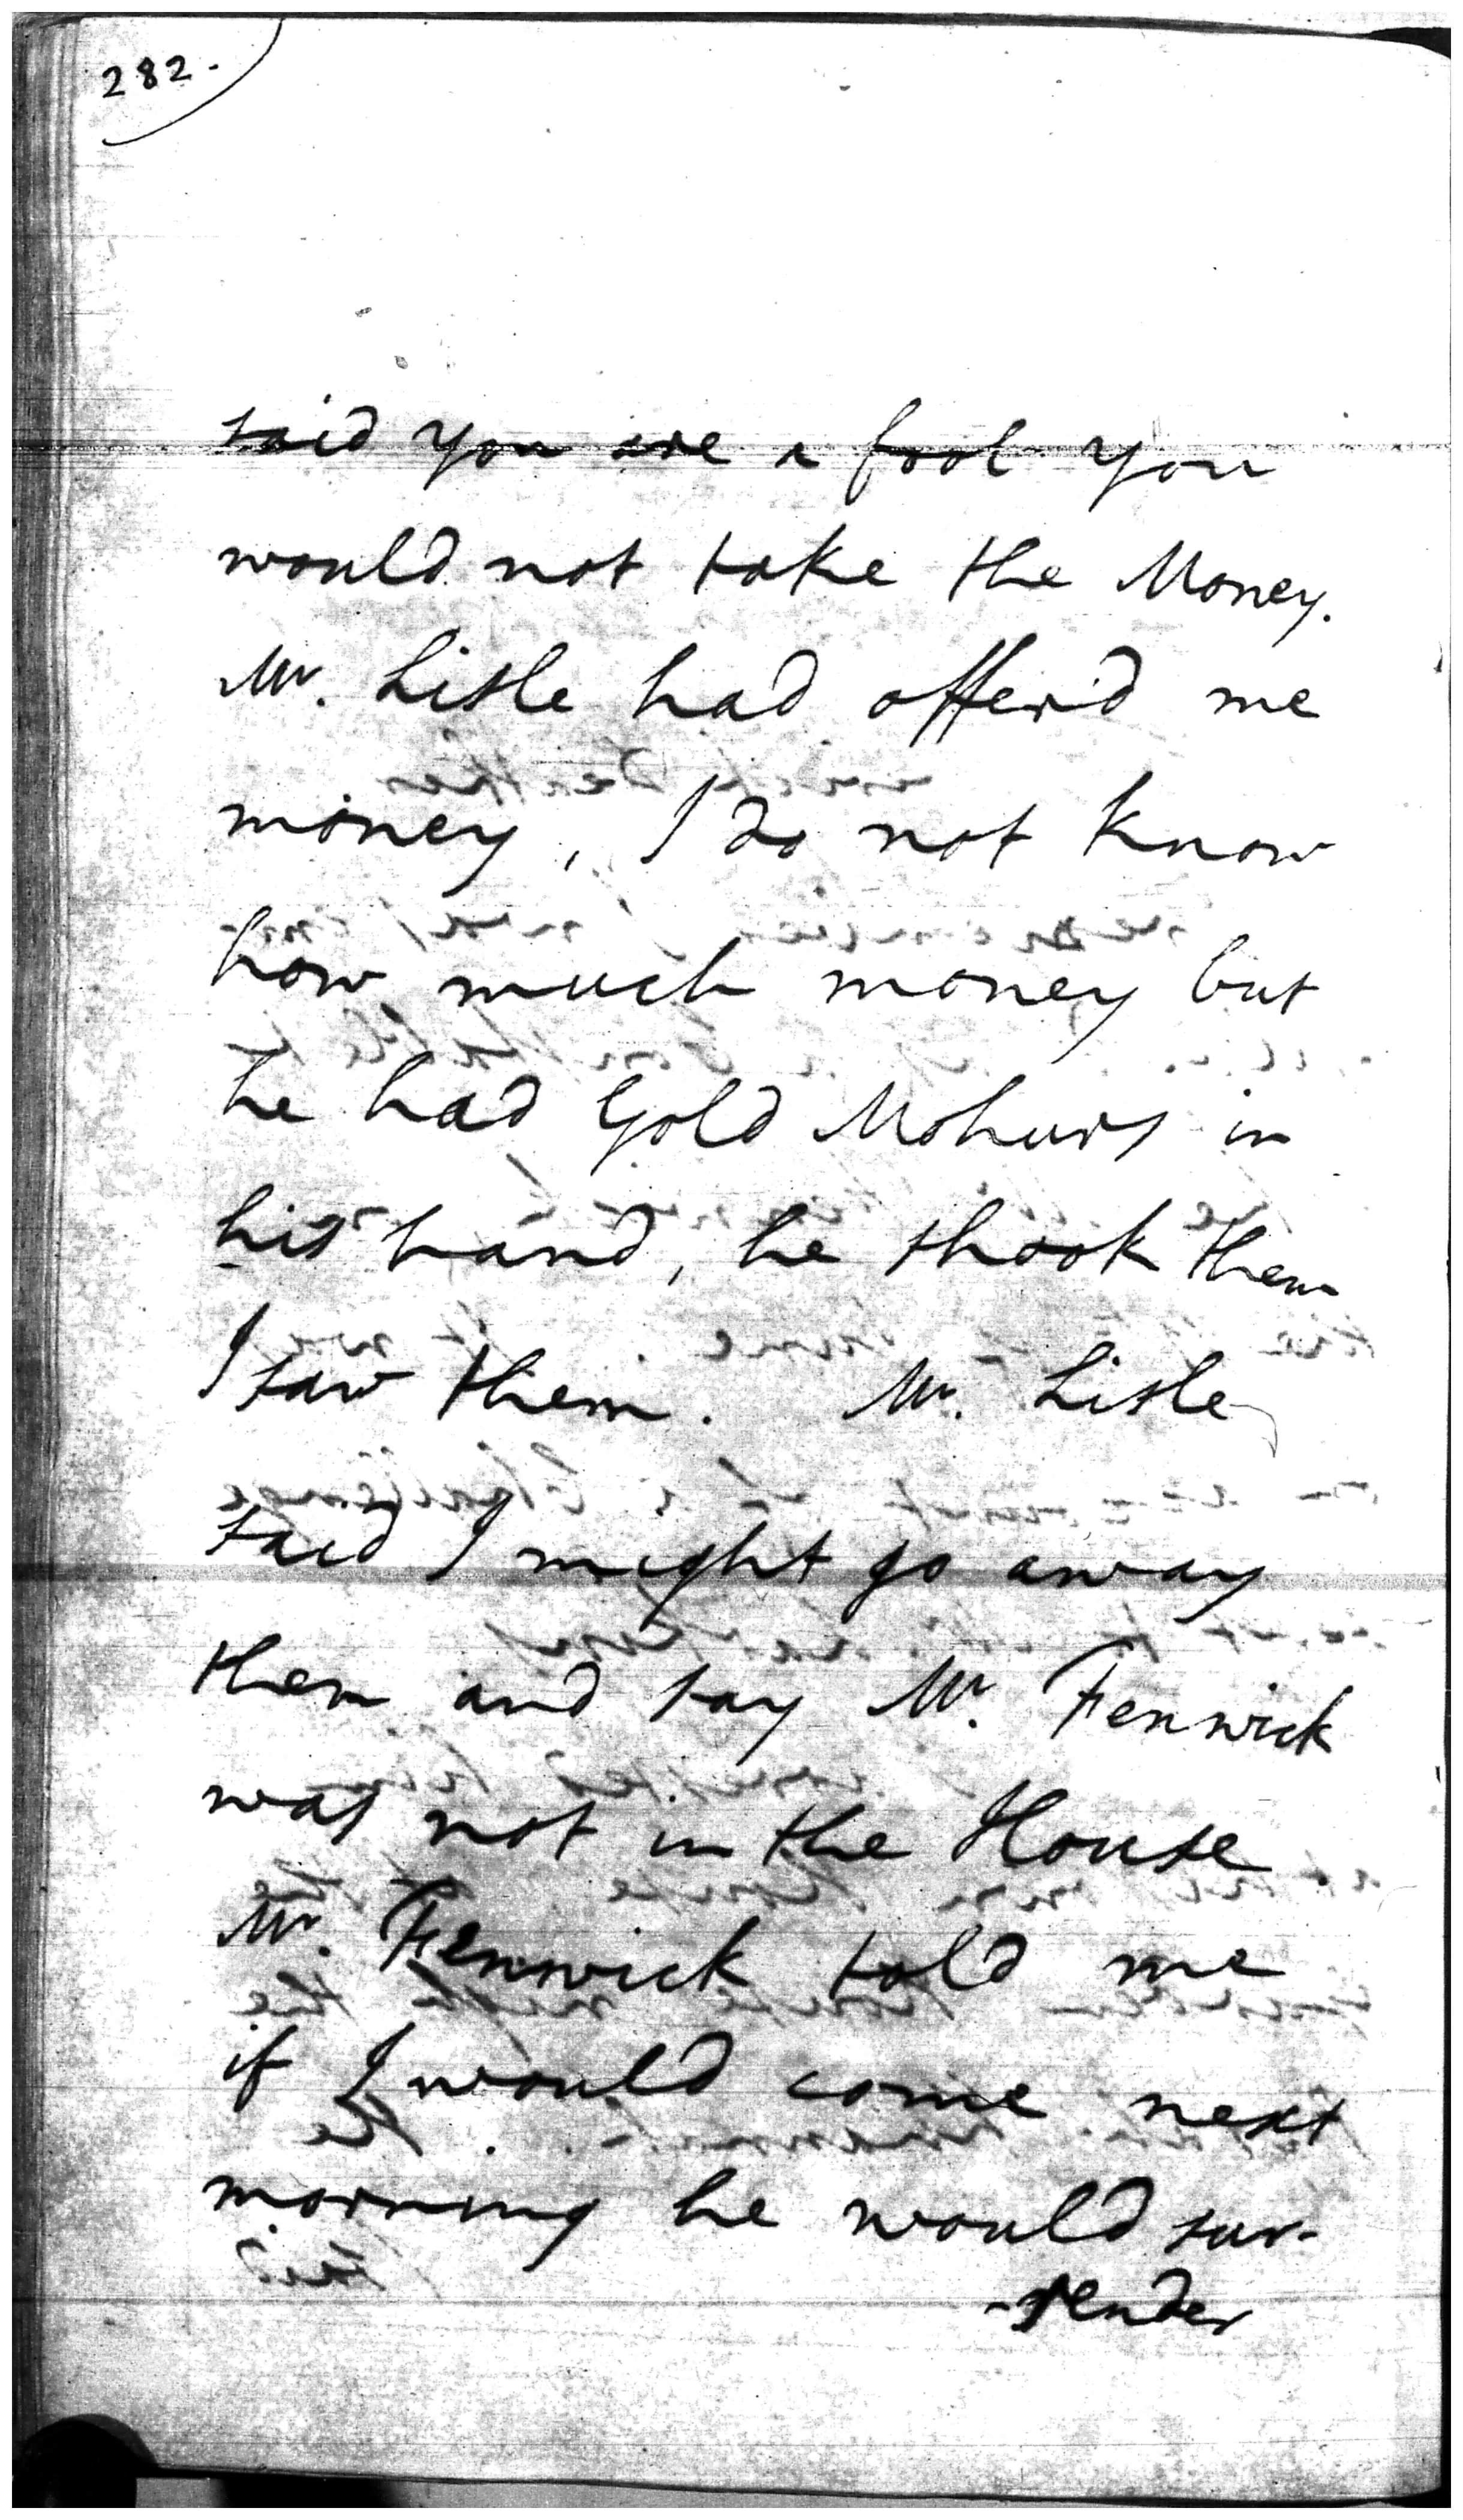 282.
said you are a fool you
would not take the Money.
Mr. Lisle had offer'd me
money, I do not know
how much money but
he had Gold Mohurs in
his hand, he shook them
I saw them. Mr. Lisle
said I might go away
then and say Mr. Fenwick
was not in the House
Mr. Fenwick told me
if I would come next
morning he would sur-
-render